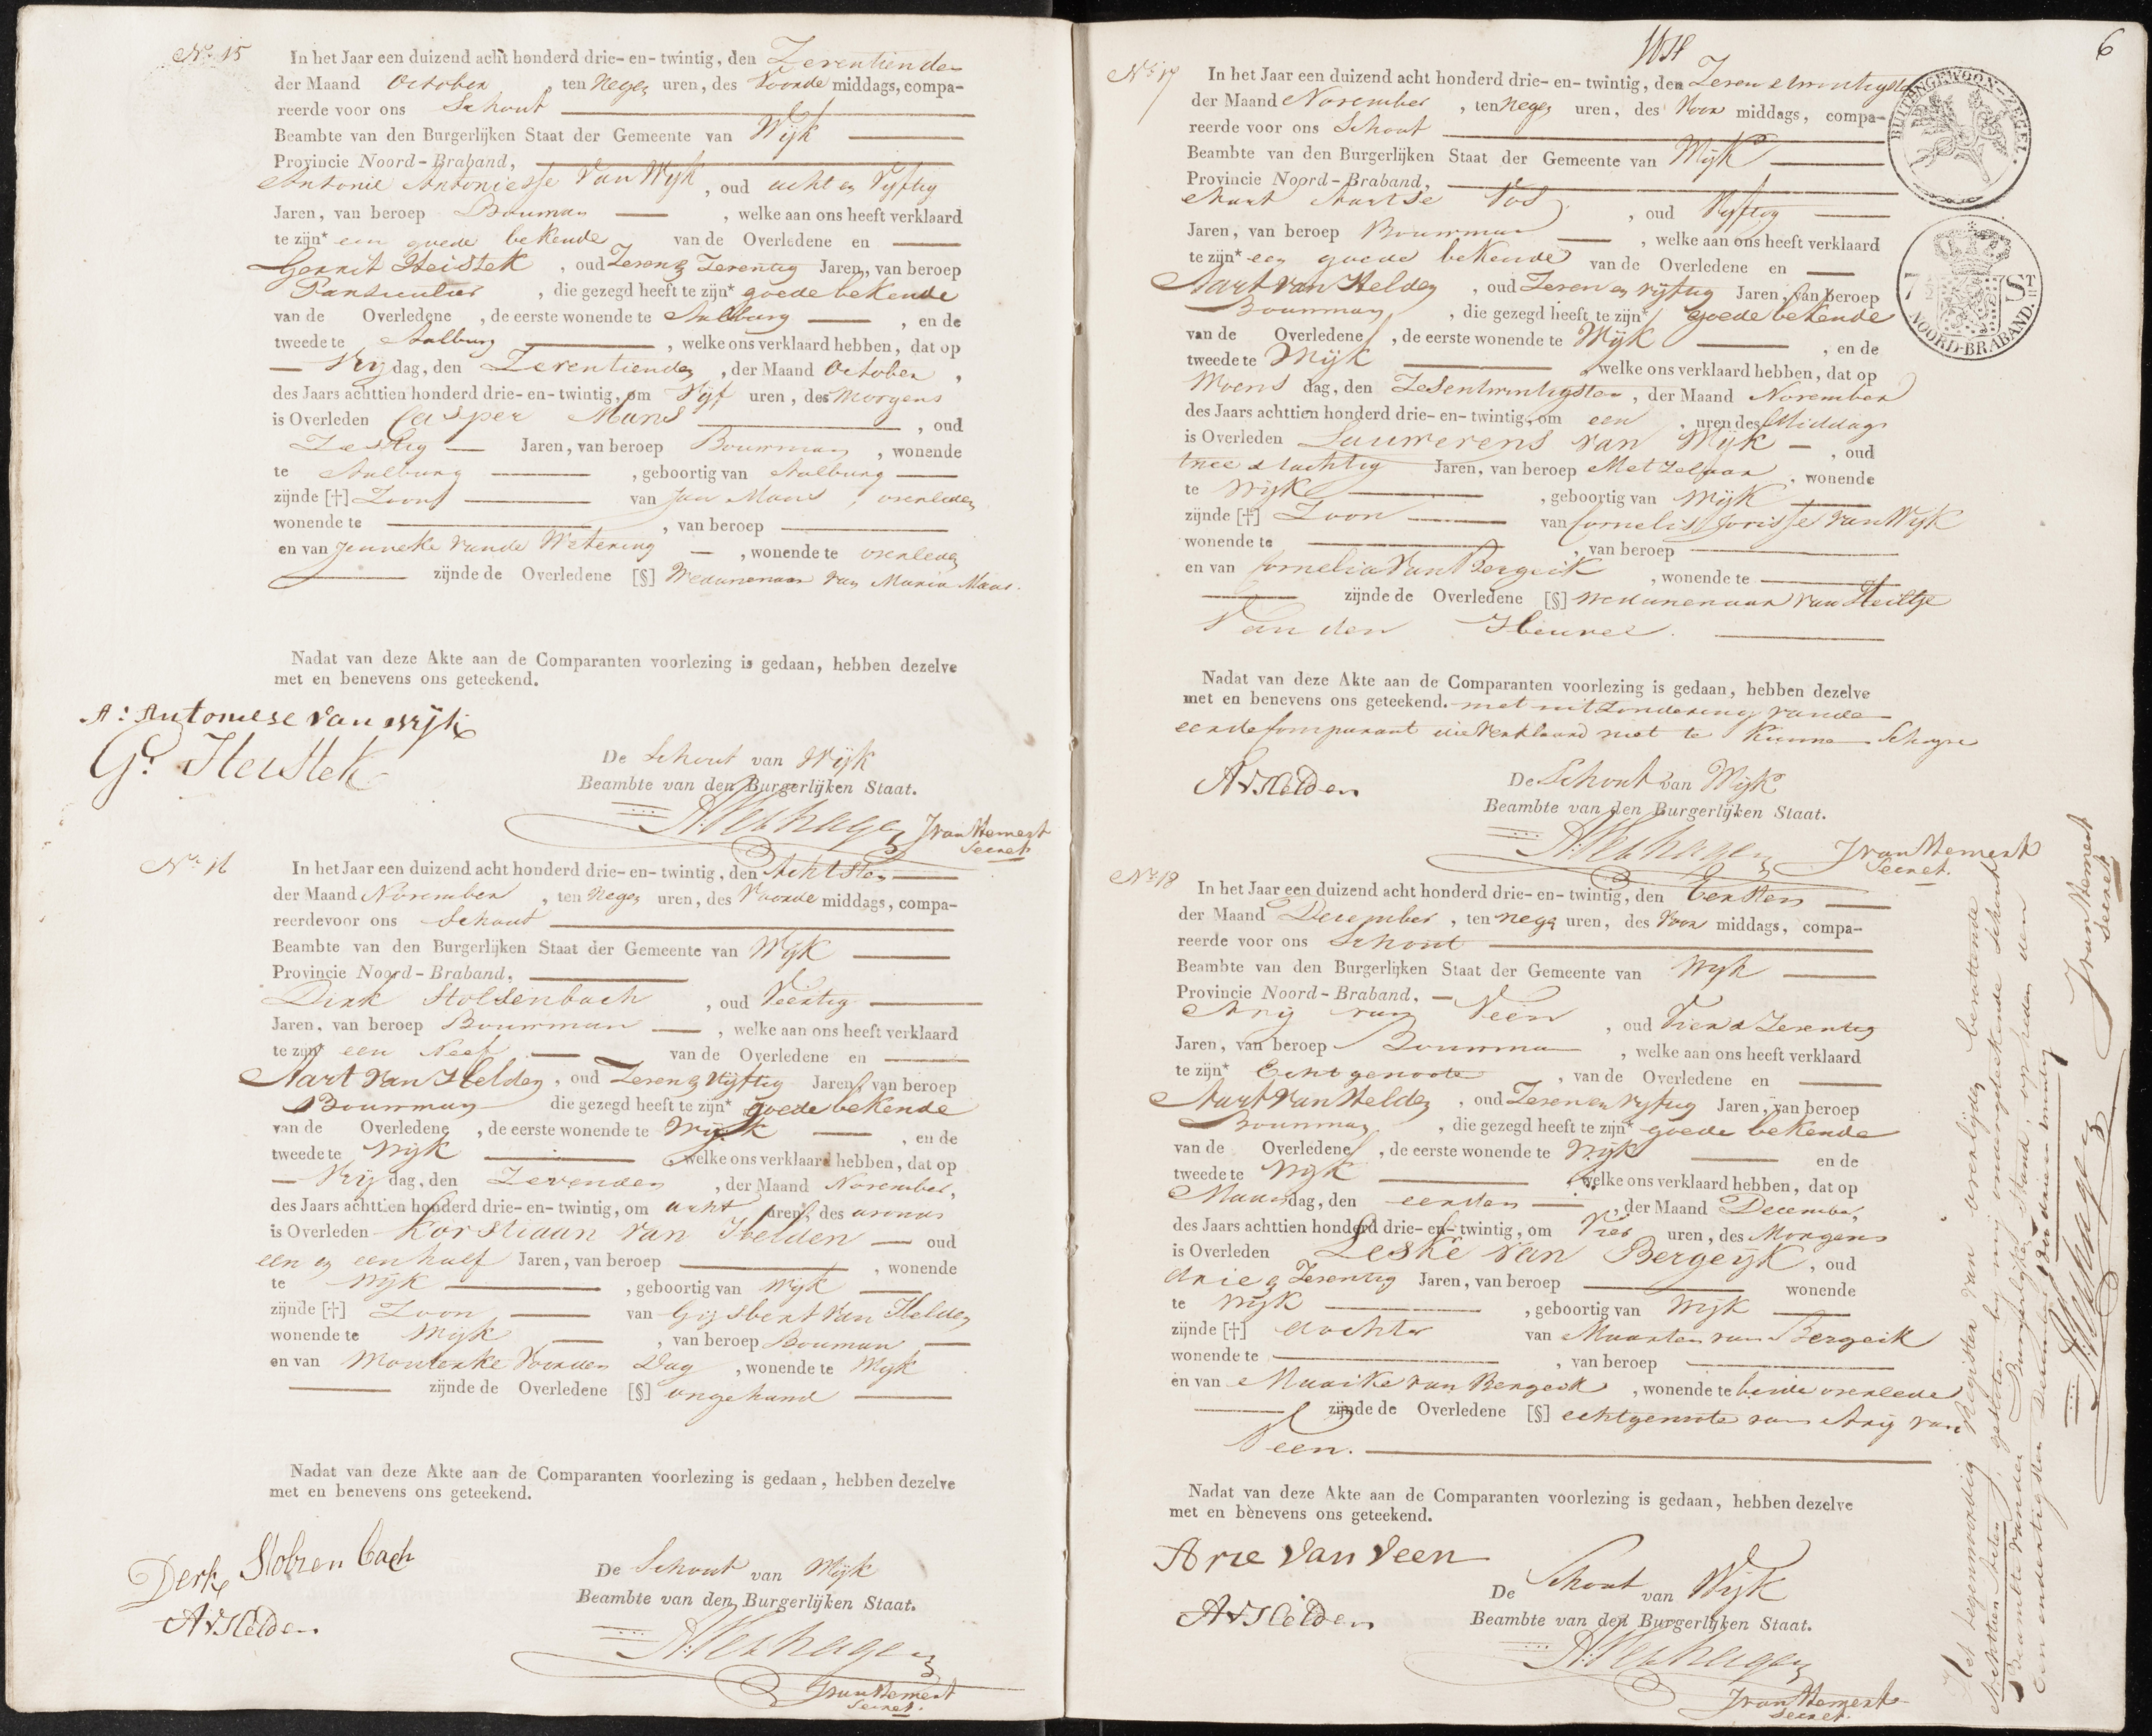 No. 15
In het Jaar een duizend acht honderd drie-en-twintig, den Zeventienden
der Maand October, ten Negen uren, des Voorde middags, compa-
reerde voor ons Schout
Beambte van den Burgerlijken Staat der Gemeente van Wijk
Provincie Noord-Braband,
Antonie Antoniesse Van Wijk, oud acht en Vijftig
Jaren, van beroep Bouman, welke aan ons heeft verklaard
te zijn* een goede bekende van de Overledene en
Gerrit Heistek, oud Zeven en Zeventig Jaren, van beroep
Particulier, die gezegd heeft te zijn* goede bekende
van de Overledene, de eerste wonende te Aalburg, en de
tweede te Aalburg, welke ons verklaard hebben, dat op
Vrij dag, den Zeventienden, der Maand October,
des Jaars achttien honderd drie-en-twintig, om Vijf uren, des Morgens
is Overleden Casper Mans, oud
Zestig Jaren, van beroep Bouwman, wonende
te Aalburg, geboortig van Aalburg
zijnde [†] Zoon van Jan Mans, overleden
wonende te , van beroep
en van Jenneke vande Wetering, wonende te overleden
zijnde de Overledene [§] Weduwenaar van Maria Maas.
Nadat van deze Akte aan de Comparanten voorlezing is gedaan, hebben dezelve
met en benevens ons geteekend.
A: Antoniese van wijk
G. Heistek
De Schout van Wijk
Beambte van den Burgerlijken Staat.
A. Verhagen J van Hemert
Secret.
No. 16
In het Jaar een duizend acht honderd drie-en-twintig, den Achtsten
der Maand November, ten Negen uren, des Voorde middags, compa-
reerde voor ons Schout
Beambte van den Burgerlijken Staat der Gemeente van Wijk
Provincie Noord-Braband,
Dirk Stolsenbach, oud Veertig
Jaren, van beroep Bouwman, welke aan ons heeft verklaard
te zijn* een Neef van de Overledene en
Aart Van Helden, oud Zeven en Vijftig Jaren, van beroep
Bouwman die gezegd heeft te zijn* goede bekende
van de Overledene, de eerste wonende te Wijk, en de
tweede te Wijk, welke ons verklaard hebben, dat op
Vrij dag, den Zevenden, der Maand November,
des Jaars achttien honderd drie-en-twintig, om acht uren, des avonds
is Overleden Korstiaan van Helden oud
een en een half Jaren, van beroep , wonende
te Wijk, geboortig van Wijk
zijnde [†] Zoon van Gijsbert Van Helden
wonende te Wijk, van beroep Bouman
en van Vaorden Dag, wonende te Wijk
zijnde de Overledene [§] ongehuwd
Nadat van deze Akte aan de Comparanten voorlezing is gedaan, hebben dezelve
met en benevens ons geteekend.
Derk Stolzenbach
AvHelden
De Schout van Wijk
Beambte van den Burgerlijken Staat.
A. Verhagen
J van Hemert
Secret.
6
No. 17
In het Jaar een duizend acht honderd drie-en-twintig, den Zeven Entwintigsten
der Maand November, ten negen uren, des Voor middags, compa-
reerde voor ons Schout
Beambte van den Burgerlijken Staat der Gemeente van Wijk
Provincie Noord-Braband,
Aart Aartse Vos, oud Vijftig
Jaren, van beroep Bouwman, welke aan ons heeft verklaard
te zijn* een goede bekende van de Overledene en
Aart van Helden, oud Zeven en vijftig Jaren, van beroep
Bouwman, die gezegd heeft te zijn* goede bekende
van de Overledene, de eerste wonende te Wijk, en de
tweede te Wijk, welke ons verklaard hebben, dat op
Woens dag, den Zesentwintigsten, der Maand November
des Jaars achttien honderd drie-en-twintig, om een uren des Middags
is Overleden Lauwerens van Wijk, oud
twee entachtig Jaren, van beroep Metzelaar, wonende
te Wijk, geboortig van Wijk
zijnde [†] Zoon van Cornelis Jorisse van Wijk
wonende te , van beroep
en van Cornelia Van Bergeik, wonende te
zijnde de Overledene [§] Weduwenaar van Heiltje
Van den Heuvel.
Nadat van deze Akte aan de Comparanten voorlezing is gedaan, hebben dezelve
met en benevens ons geteekend. met uitzondering vande
eerste Comparant die verklaard niet te kunnen Schryve
AvHelden
De Schout van Wijk
Beambte van den Burgerlijken Staat.
A. Verhagen J van Hemert
Secret.
No. 18
In het Jaar een duizend acht honderd drie-en-twintig, den Eersten
der Maand December, ten negen uren, des Voor middags, compa-
reerde voor ons Schout
Beambte van den Burgerlijken Staat der Gemeente van Wijk
Provincie Noord-Braband,
Arij van Veen, oud Vier en Zeventig
Jaren, van beroep Bouwman, welke aan ons heeft verklaard
te zijn* Echtgenoote, van de Overledene en
Aart Van Helden, oud Zeven en vijftig Jaren, van beroep
Bouwman, die gezegd heeft te zijn* goede bekende
van de Overledene, de eerste wonende te Wijk en de
tweede te Wijk, welke ons verklaard hebben, dat op
Maandag, den eersten, der Maand December,
des Jaars achttien honderd drie-en-twintig, om Vier uren, des Morgens
is Overleden Leske van Bergeijk, oud
drie en Zeventig Jaren, van beroep wonende
te Wijk, geboortig van Wijk
zijnde [†] dochter van Maarten van Bergeik
wonende te , van beroep
en van Maaike van Bergeik, wonende te beide overleden
zijnde de Overledene [§] echtgenoote van Arij van
Veen.
Nadat van deze Akte aan de Comparanten voorlezing is gedaan, hebben dezelve
met en benevens ons geteekend.
Arie van Veen
AvHelden
De Schout van Wijk
Beambte van den Burgerlijken Staat.
A. Verhagen
J van Hemert
Secret.
BUITENGEWOON-ZEGEL.
7 ST
NOORD-BRABAND.
Het tegenwoordig Register van overlijden bevattende
Achttien Acten, gesloten by mij ondergeteekende Schout
Beambte vanden Burgerlijken Stand, op heden den
een en dertigsten December drieentwintig
A. Verhagen
J van Hemert
Secret